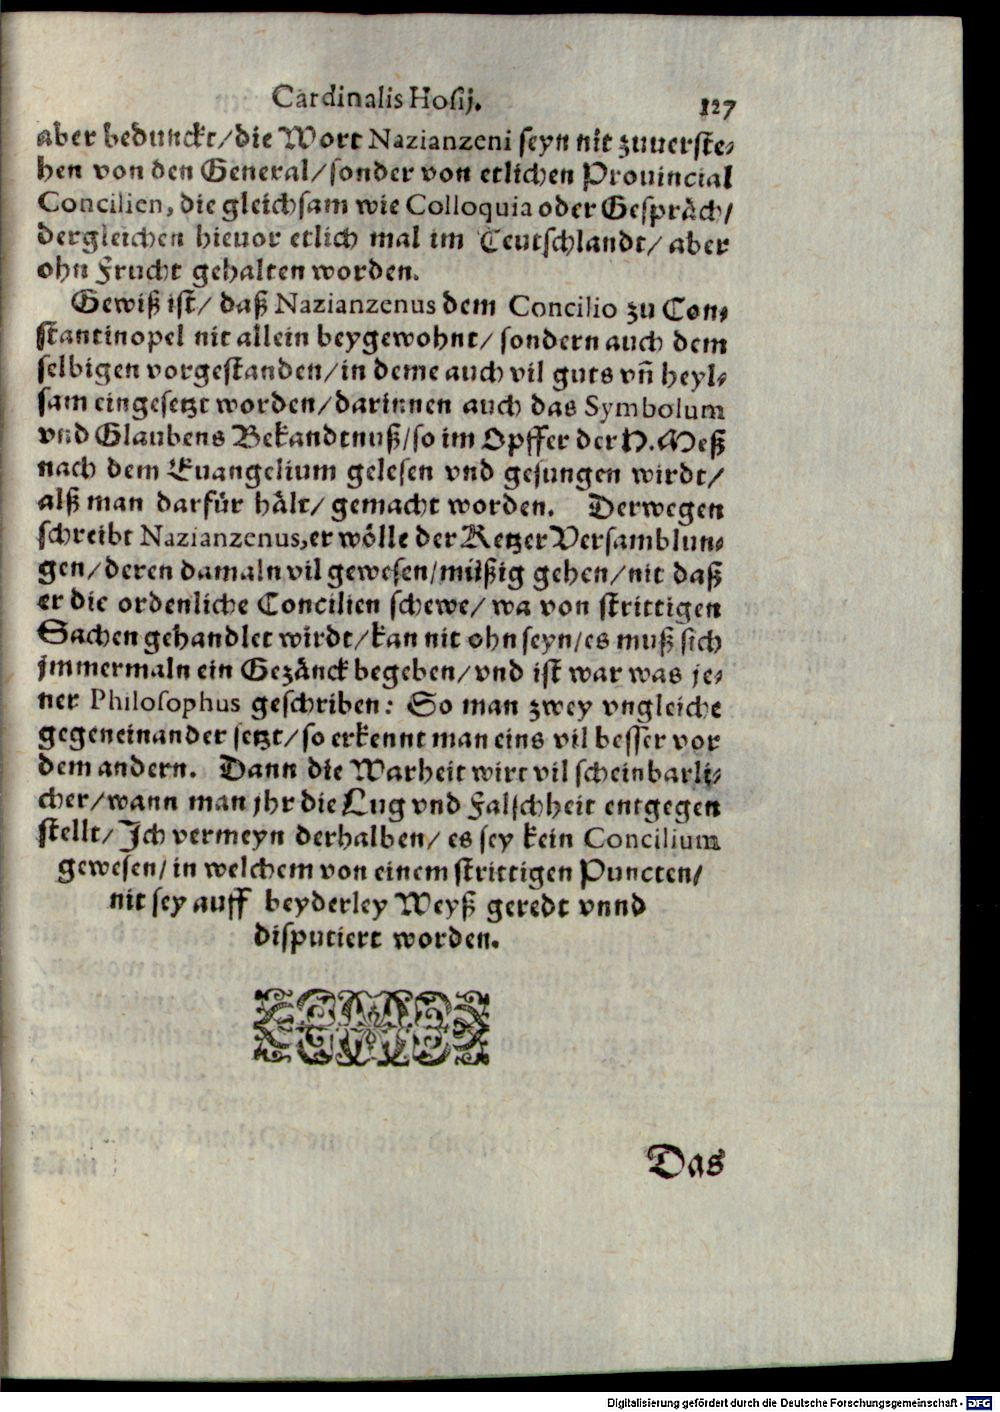 Cardinalis Hosij. 127
aber bedunckt/die Wort Nazianzeni seyn nit zuuerste-
hen von den General/sonder von etlichen Prouincial
Concilien, die gleichsam wie Colloquia oder Gespräch/
dergleichen hieuor etlich mal im Teutschlandt/ aber
ohn Frucht gehalten worden.
Gewiß ist/ daß Nazianzenus dem Concilio zu Con-
stantinopel nit allein beygewohnt/ sondern auch dem
selbigen vorgestanden/in deme auch vil guts vñ heyl-
sam eingesetzt worden/darinnen auch das Symbolum
vnd Glaubens Bekandtnuß/so im Opffer der H. Meß
nach dem Euangelium gelesen vnd gesungen wirdt/
alß man darfür hält/ gemacht worden. Derwegen
schreibt Nazianzenus, er wölle der Ketzer Versamblun-
gen/deren damaln vil gewesen/müßig gehen/nit daß
er die ordenliche Concilien schewe/ wa von strittigen
Sachen gehandlet wirdt/kan nit ohn seyn/es muß sich
jmmermaln ein Gezänck begeben/vnd ist war was je-
ner Philosophus geschriben: So man zwey vngleiche
gegeneinander setzt/so erkennt man eins vil besser vor
dem andern. Dann die Warheit wirt vil scheinbarli-
cher/wann man jhr die Lug vnd Falschheit entgegen
stellt/Ich vermeyn derhalben/ es sey kein Concilium
gewesen/in welchem von einem strittigen Puncten/
nit sey auff beyderley Weyß geredt vnnd
disputiert worden.
Das
Digitalisierung gefördert durch die Deutsche Forschungsgemeinschaft - DFG